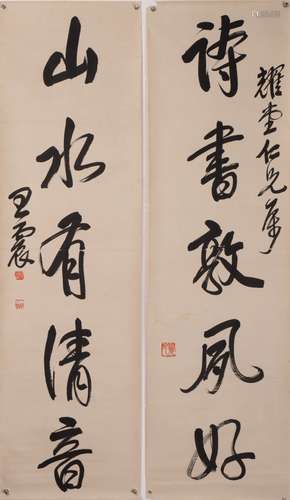 耀堂仁兄属
詩書敦夙好
山水有清音
王震